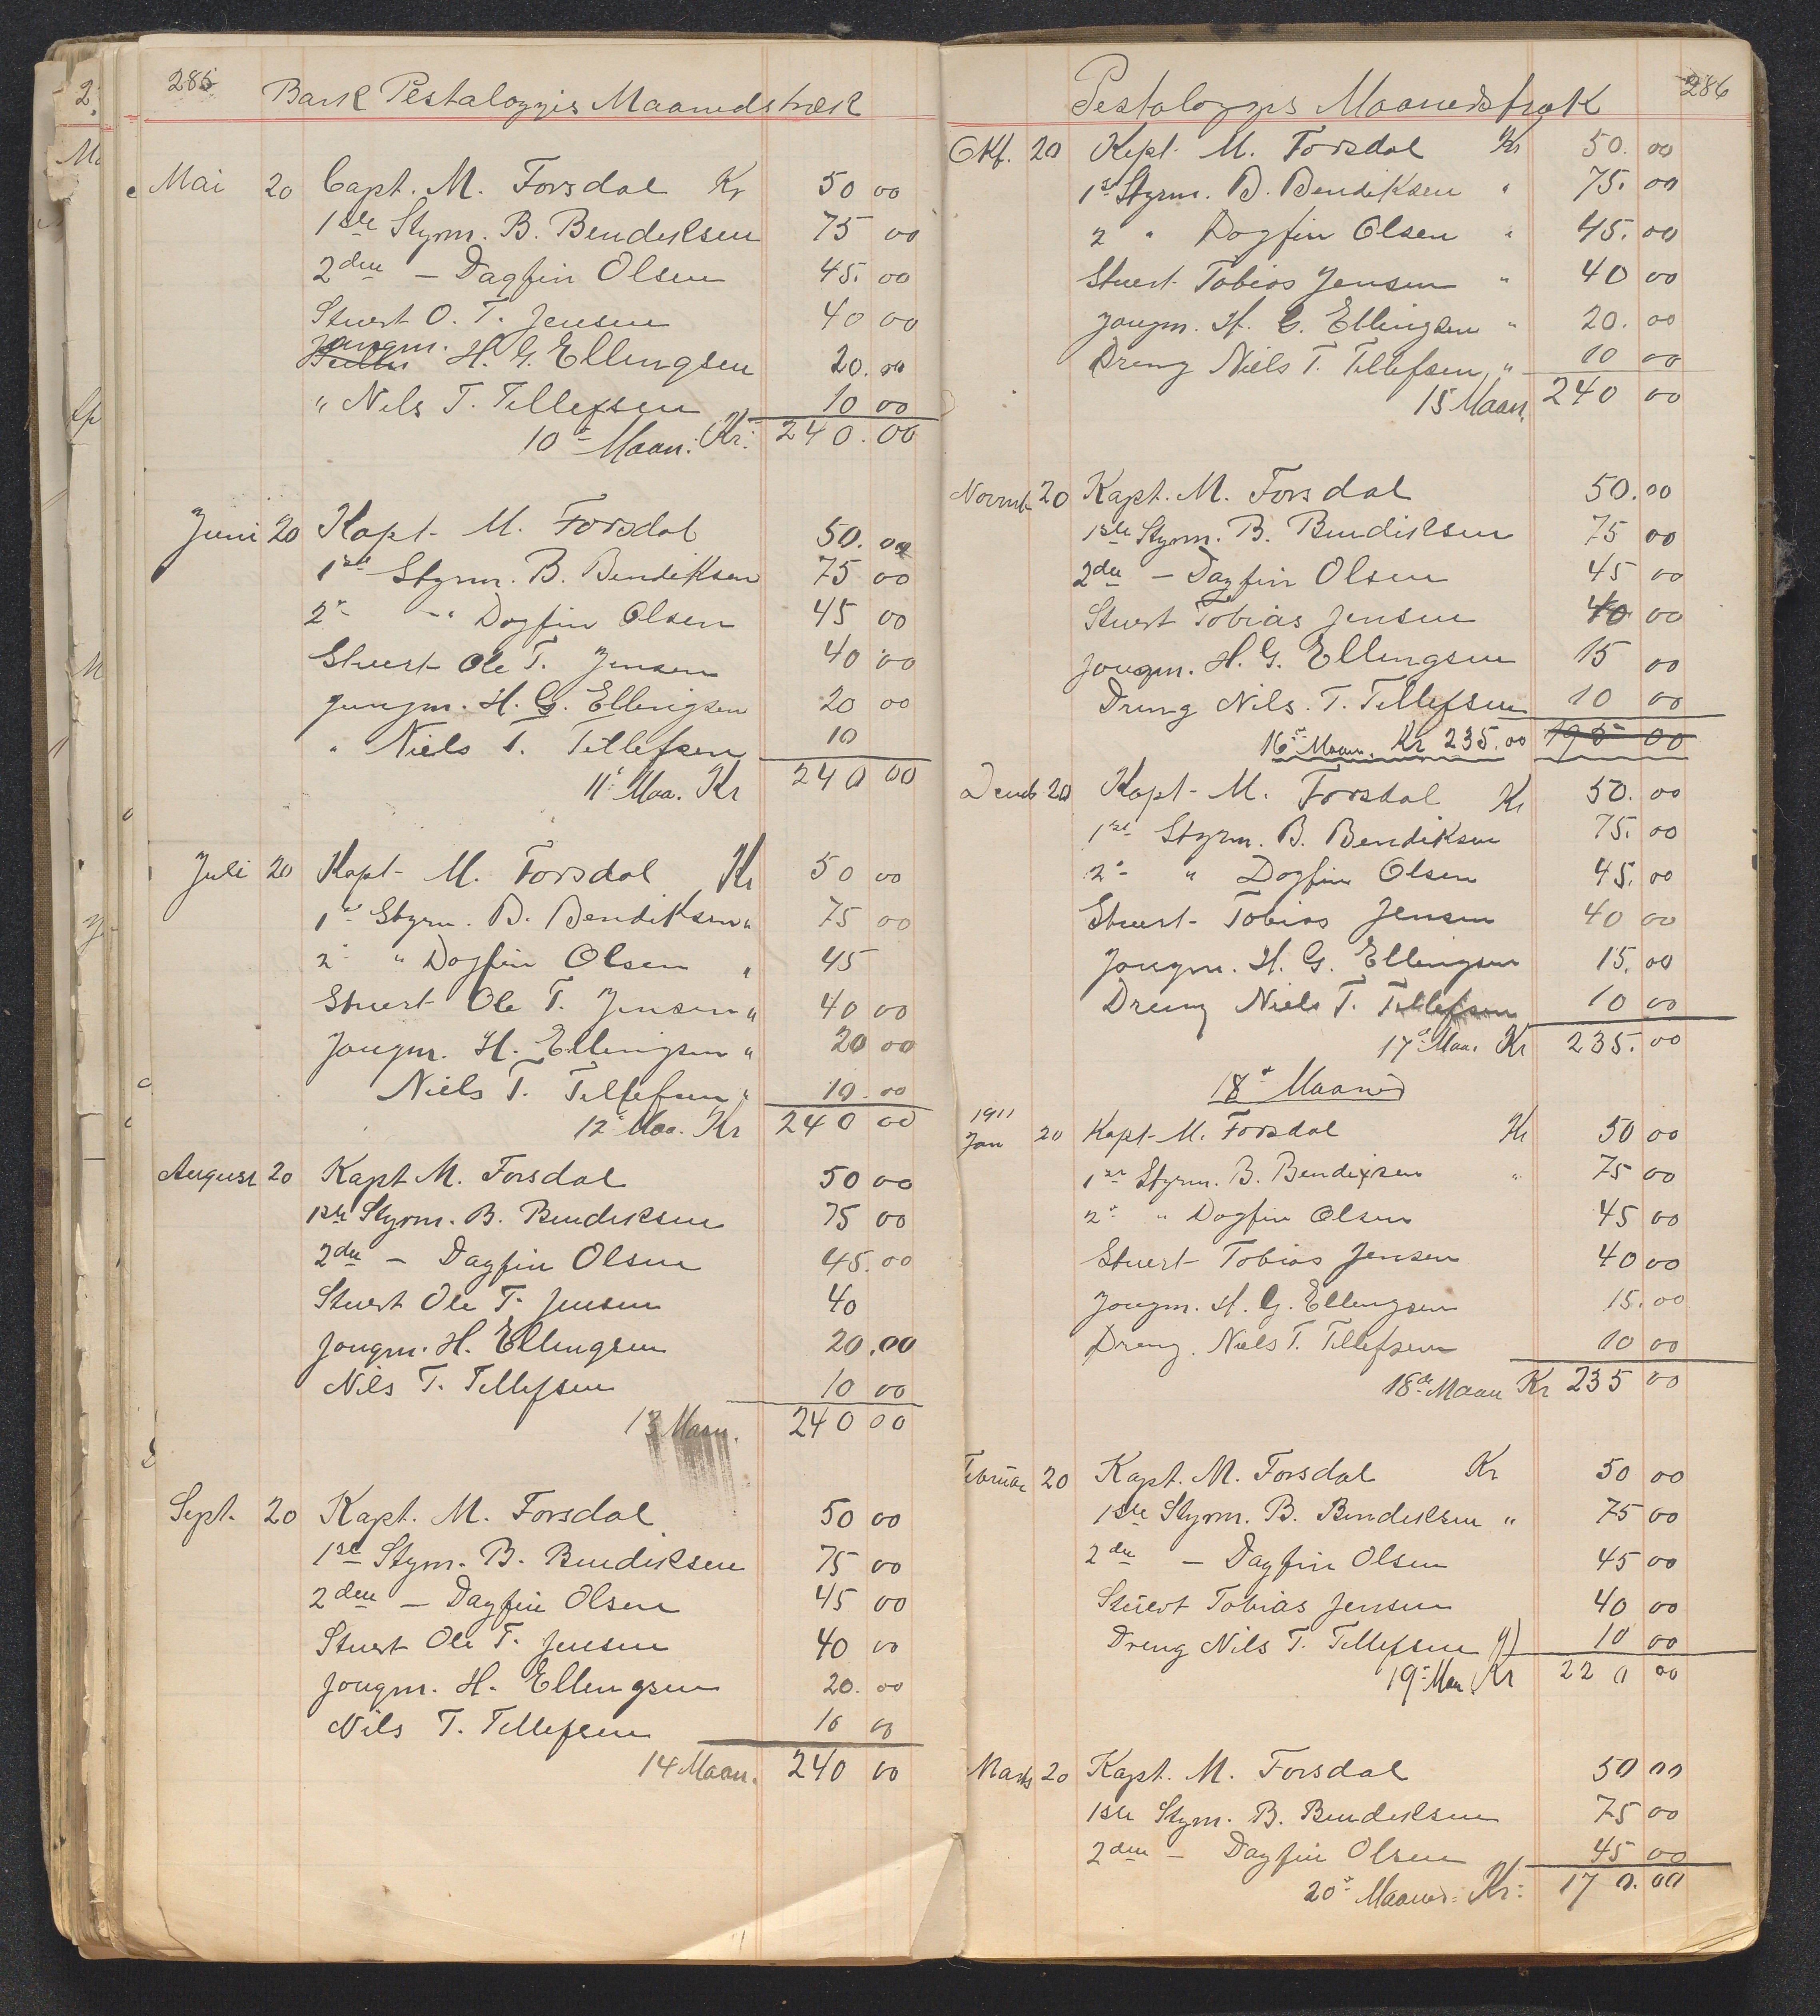 285
Bark Pestalozzis Maanedstræk
Mai 20 Capt. M. Forsdal Kr 50 00
1ste Styrm. B. Bendiksen 75 00
2den - Dagfin Olsen 45. 00
Stuert O. T. Jensen 40 00
Jungm. H. G. Ellingsen 20. 00
" Nils T. Tellefsen 10 00
10 Maan: Kr: 240.00
Juni 20 Kapt. M. Forsdal 50. 00
1ste Styrm. B. Bendiksen 75 00
2 - " Dagfin Olsen 45 00
Stuert Ole T. Jensen 40 00
Jungm. H. G. Ellingsen 20 00
" Niels T. Tellefsen 10
11 Maa. Kr 240 00
Juli 20 Kapt M. Forsdal Kr 50 00
1 Styrm. B. Bendiksen " 75 00
2 " Dagfin Olsen " 45
Stuert Ole T. Jensen " 40 00
Jongm. H. Ellingsen " 20 00
Niels T. Tellefsen " 10.00
12 Maa. Kr 240 00
August 20 Kapt M. Forsdal 50 00
1ste Styrm. B. Bendiksen 75 00
2den - Dagfin Olsen 45.00
Stuert Ole T. Jensen 40
Jongm. H. Ellingsen 20.00
Nils T. Tellefsen 10 00
13 Maan. 240 00
Sept. 20 Kapt. M. Forsdal 50 00
1ste Styrm. B. Bendiksen 75 00
2den - Dagfin Olsen 45 00
Stuert Ole T. Jensen 40 00
Jongm. H. Ellingsen 20.00
Nils T. Tellefsen 10 00
14 Maan. 240 00
286
Pestalozzis Maanedstræk
Okt. 20 Kapt. M. Forsdal Kr 50. 00
1st Styrm. B. Bendiksen " 75. 00
2 " Dagfin Olsen " 45. 00
Stuert Tobias Jensen " 40 00
Jongm. H. G. Ellingsen " 20. 00
Dreng Niels T. Tellefsen " 10 00
15 Maan. 240 00
Novmb 20 Kapt. M. Forsdal 50.00
1ste Styrm. B. Bendiksen 75 00
2den - Dagfin Olsen 45 00
Stuert Tobias Jensen 40 00
Jongm. H. G. Ellingsen 15 00
Dreng Nils. T. Tellefsen 10 00
16 Maan. Kr 235.00 195 00
Decmb 20 Kapt M. Forsdal Kr 50. 00
1ste Styrm. B. Bendiksen 75. 00
2 " Dagfin Olsen 45. 00
Stuert Tobias Jensen 40 00
Jongm. H. G. Ellingsen 15. 00
Dreng Niels T. Tellefsen 10 00
17 Maa. Kr 235. 00
18 Maaned
1911
Jan 20 Kapt M. Forsdal Kr 50 00
1ste Styrm. B. Bendixsen " 75 00
2 " Dagfin Olsen 45 00
Stuert Tobias Jensen 40 00
Jongm. H. G. Ellingsen 15.00
Dreng. Niels T. Tellefsen 10 00
18de Maan Kr 235 00
Februar 20 Kapt. M. Forsdal Kr 50 00
1ste Styrm. B. Bendiksen " 75 00
2den - Dagfin Olsen 45 00
Stuert Tobias Jensen 40 00
Dreng Nils T. Tellefsen 10 00
19 Maa. Kr 220 00
Marts 20 Kapt. M. Forsdal 50 00
1ste Styrm. B. Bendiksen 75 00
2den - Dagfin Olsen 45 00
20 Maaned: Kr: 170.00